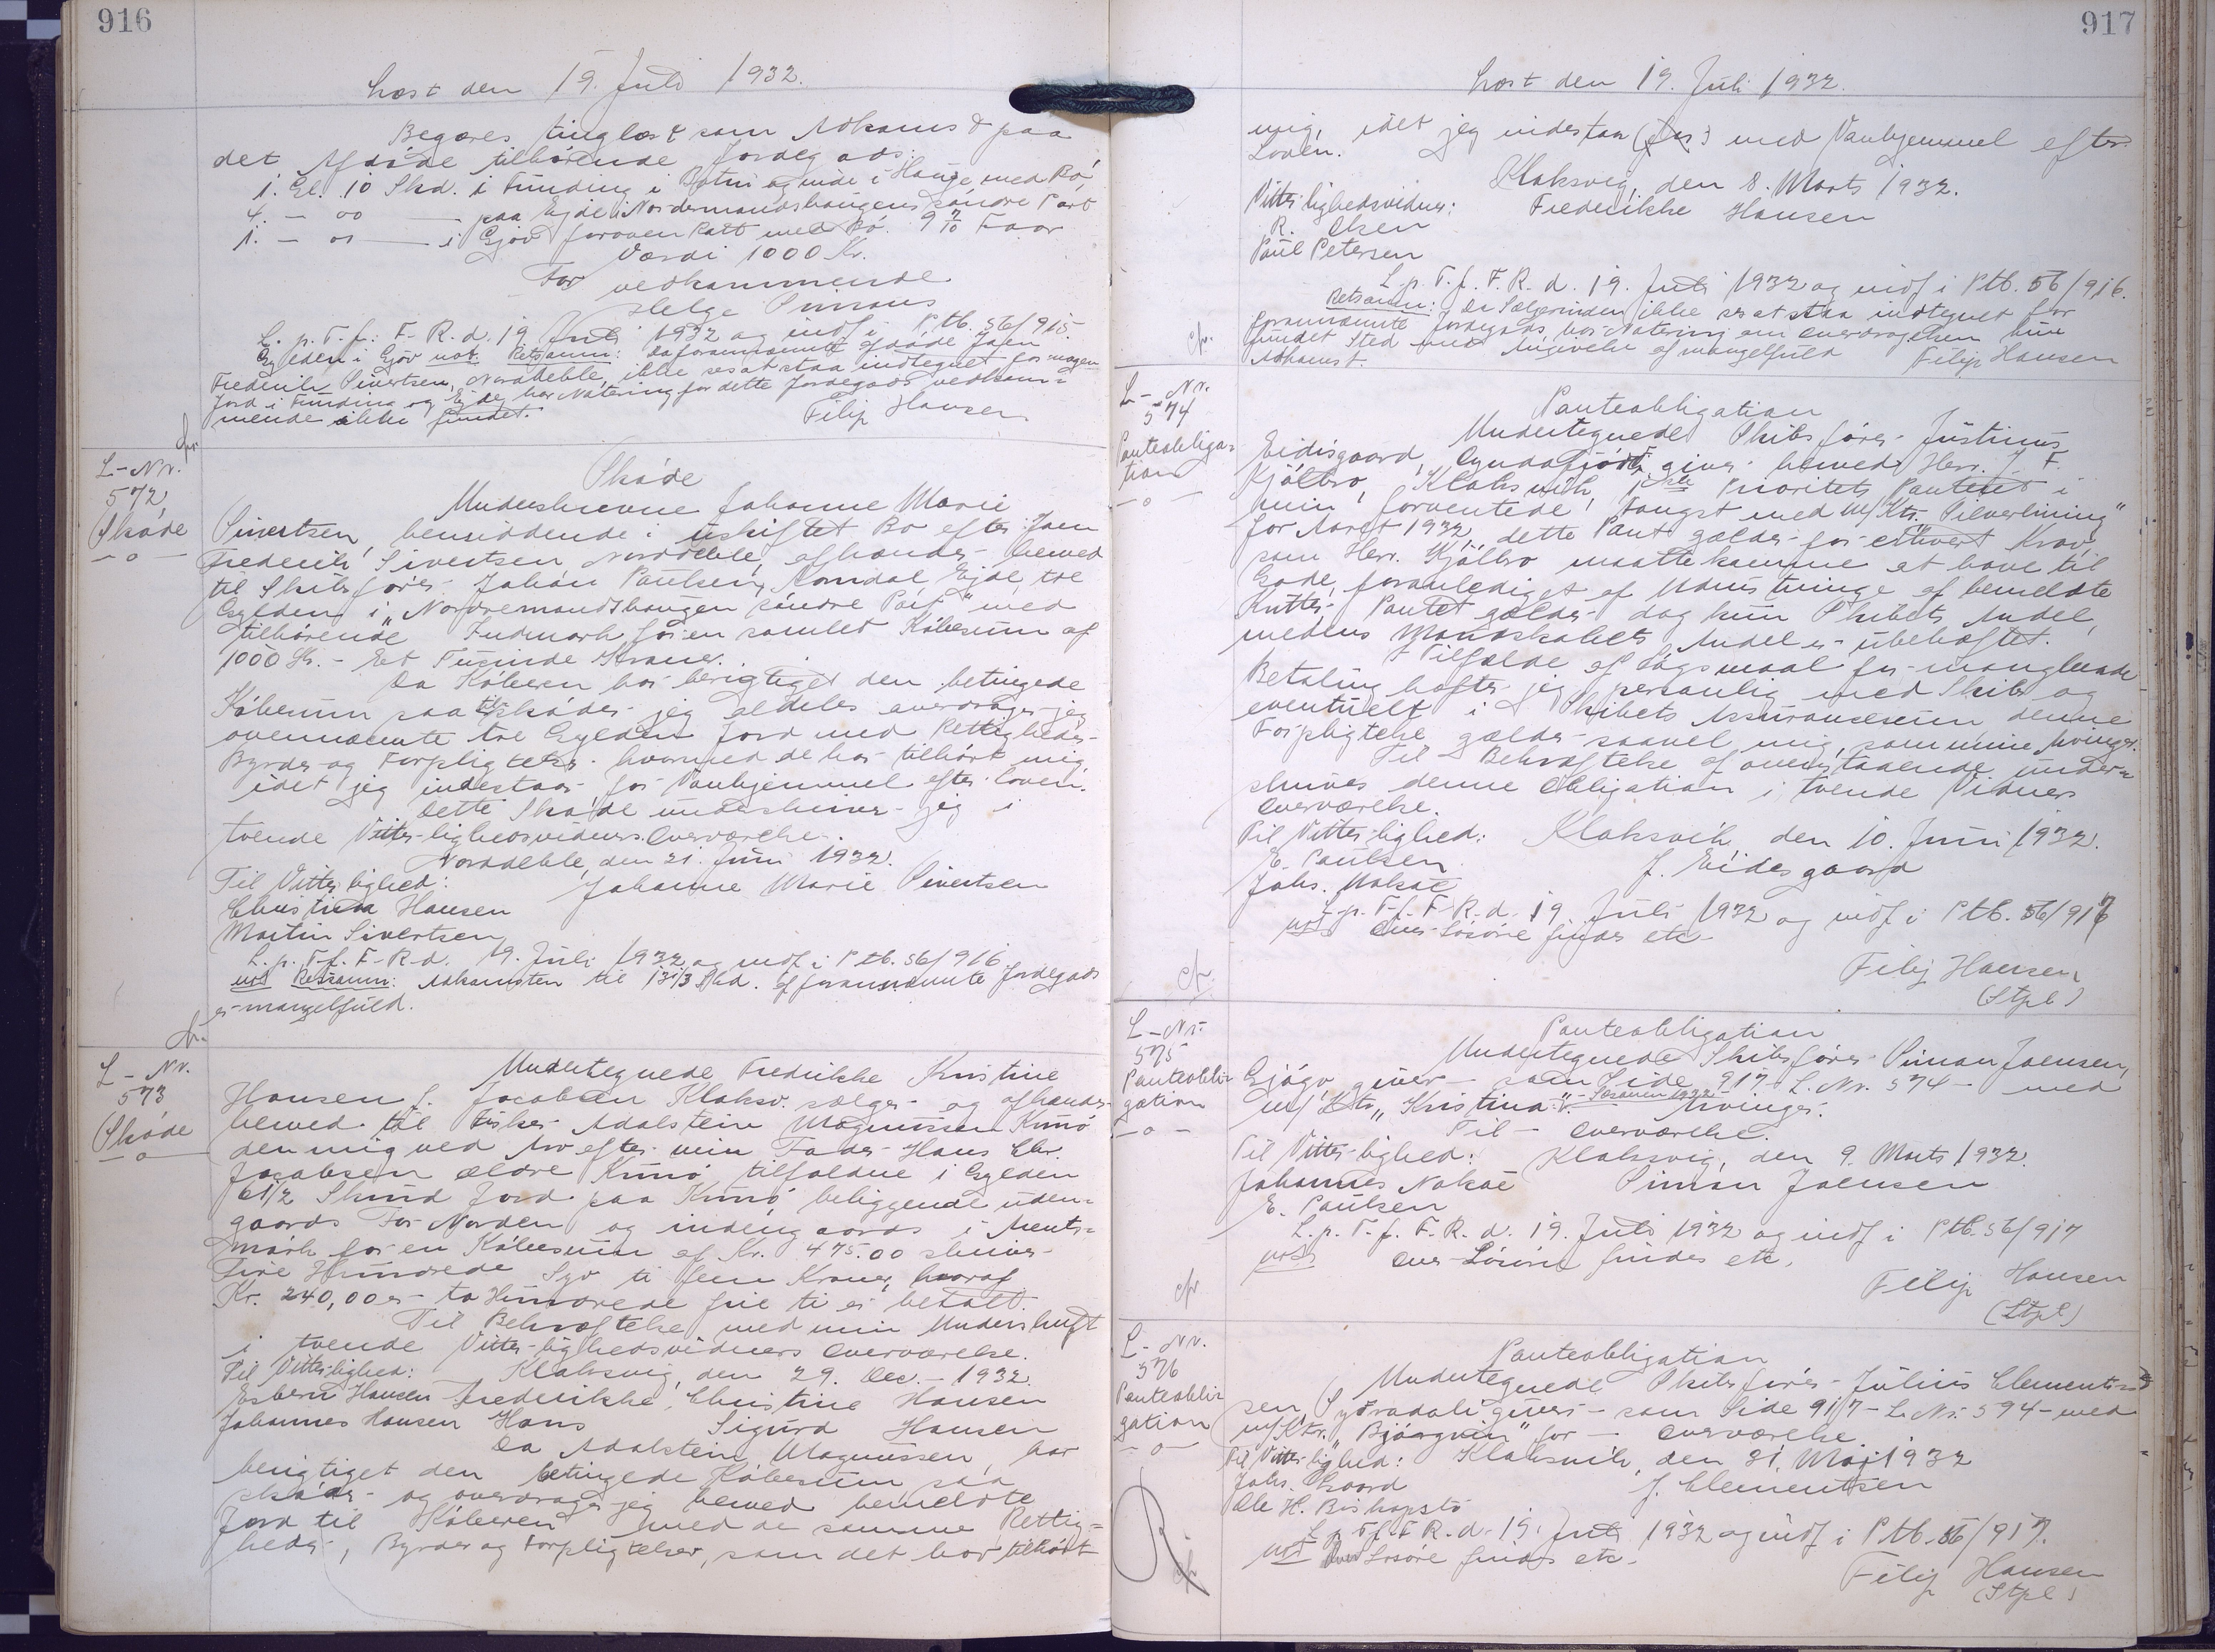 916
Læst den 19. Juli 1932.
Begæres tinglæst som Adkomst paa
det Afdøde tilhørende Jordegods:
1. Gl. 10 Skd. i Funding i Botni og inde i Hauge med Bø,
4. — oo — paa Ejde i Nordermandshaugens søndre Part
1. — oo — i Gjov foroven Ratt med Bø. 9 7/10 Faar
Værdi 1000 Kr.
For vedkommende
Helge
L. p. T. f. F. R. d. 19 Juli 1932 og indf i Ptb. 56/915.
Gylden i Gjov not. Retsanm: Da forannævnte afdøde Joen
Frederik Sivertsen, Norddeble, ikke ses at staa indtegnet for nogen
Jord i Funding og Ejde, har Notering for dette Jordegods vedkom-
mende ikke fundet.
Filip Hansen
L-Nr.
572
Skøde
—o—
Skøde
Underskrevne Johanne Marie
Sivertsen, hensiddende i uskiftet Bo efter Joen
Frederik Sivertsen Norddeble, afhænder herved
til Skibsfører Johan Paulsen, Ejde, tre
Gylden i „Nordremandshaugen søndre Part" med
tilhørende Indmark for en samlet Købesum af
1000 Kr. - Eet Tusinde Kroner.
Da Køberen har berigtiget den betingede
Købesum saa tilskøder jeg aldeles overdrager jeg
ovennævnte tre Gylden Jord med Rettigheder
Byrder og Forpligtelser hvormed de har tilhørt mig
idet jeg indestaar for Vanhjemmel efter Loven.
Dette Skøde underskriver jeg i
tvende Vitterlighedsvidners Overværelse.
Norddeble, den 21. Juni 1932.
Til Vitterlighed: Johanne Marie Sivertsen
Christina Hansen
Martin Sivertsen
L. p. T. f. F. R. d. 19. Juli 1932 og indf i Ptb. 56/916
not Retsanm: Adkomsten til 13 1/3 Skd. af forannævnte Jordegods
er mangelfuld.
L-Nr.
573
Skøde
—o—
Undertegnede Fredrikke Kristine
Hansen f. Jacobsen Klaksv. sælger og afhænder
herved til Fisker Adalstein Magnussen Kunø
den mig ved Arv efter min Fader Hans Chr.
Jacobsen ældre Kunø tilfaldne i Gylden
6 1/2 Skind Jord paa Kunø, beliggende uden-
gaards For Norden og indengaards i
mark for en Købesum af Kr. 475.00 skriver
Fire Hundrede Syv ti fem Kroner, hvoraf
Kr. 240,00 er to Hundrede fire ti er betalt.
Til Bekræftelse med min Underskrift
i tvende Vitterlighedsvidners Overværelse.
Til Vitterlighed: Klaksvig, den 29. Dec. 1932.
Esbern Hansen Frederikke Christine Hansen
Johannes Hansen Hans Sigurd Hansen
Da Adalstein Magnussen har
berigtiget den betingede Købesum saa
skøder og overdrager jeg herved bemeldte
Jord til Køberen med de samme Rettig-
heder, Byrder og Forpligtelser, som det har tilhørt
917
Læst den 19. Juli 1932.
mig, idet jeg indestaar (for) med Vanhjemmel efter
Loven.
Klaksvig, den 8. Marts 1932.
Vitterlighedsvidner: Frederikke Hansen
R. Olsen
Paul Petersen
L. p. T. f. F. R. d. 19. Juli 1932 og indf i Ptb. 56/916.
Retsanm: Da Sælgerinden ikke ses at staa indtegnet for
forannævnte Jordegods, har Notering om Overdragelsen kun
fundet Sted med Angivelse af mangelfuld
Adkomst. Filip Hansen
L-Nr.
574
Panteobliga-
tion
—o—
Panteobligation
Undertegnede Skibsfører Justinus
Eidisgaard, Gyndafjord, giver herved Herr. J. F.
Kjølbro, Klaksvik, 1ste Prioritets Panteret i
min forventede Fangst med M/Ktr. „Silverlining"
for Aaret 1932, dette Pant gælder for ethvert Krav
som Herr. Kjølbro maatte komme at have til
Gode, foranlediget af Udrustninge af bemeldte
Kutter. Pantet gælder dog kun Skibets Andel,
medens Mandskabets Andel er ubehæftet.
I Tilfælde af Søgsmaal for manglende
Betaling hæfter jeg personlig med Skib og
eventuelt i Skibets Assurancesum denne
Forpligtelse gælder saavel mig, som mine Arvinger.
Til Bekræftelse af ovenstaaende under-
skrives denne Obligation i tvende Vidners
Overværelse.
Til Vitterlighed: Klaksvik, den 10. Juni 1932.
E. Paulsen J. Eidesgaard
Johs. Nolsøe
L. p. T. f. F. R. d. 19. Juli 1932 og indf i Ptb. 56/917
not Over Løsøre findes etc.
Filip Hansen
(Stpl)
L-Nr.
575
Panteobli-
gation
—o—
Panteobligation
Undertegnede Skibsfører Simon Joensen,
Gjógv, giver — som Side 917 L. Nr. 574 — med
M/Ktr „Kristina" — Sæsonen 1932 — Arvinger.
Til — Overværelse.
Til Vitterlighed: Klaksvig, den 9. Marts 1932.
Johannes Nolsøe Simon Joensen
E. Paulsen
L. p. T. f. F. R. d. 19. Juli 1932 og indf i Ptb. 56/917
not Over Løsøre findes etc.
Filip Hansen
(Stpl)
L-Nr.
576
Panteobli-
gation
—o—
Panteobligation
Undertegnede Skibsfører Julius Clement-
sen, Sydradali giver — som Side 917 — L. Nr. 574 — med
M/Ktr. „Bjørgvin" for — Overværelse
Til Vitterlighed: Klaksvik, den 31. Maj 1932
Johs. Gaard J. Clementsen
Ole H. Biskopstø
L. p. T. f. F. R. d. 19. Juli 1932 og indf i Ptb. 56/917.
not Over Løsøre findes etc.
Filip Hansen
(Stpl)